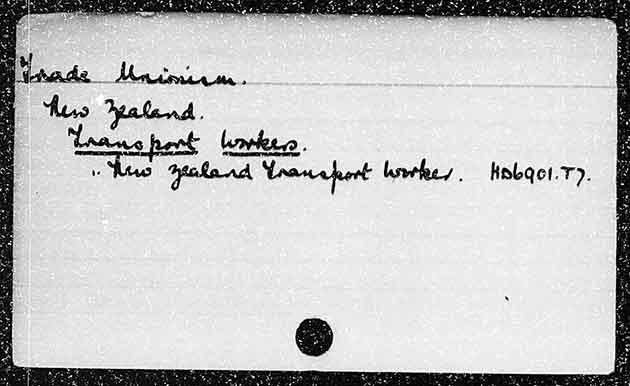 Trade Unionism.
New Zealand.
Transport Workers.
" New Zealand Transport Worker. HD6901.T7.